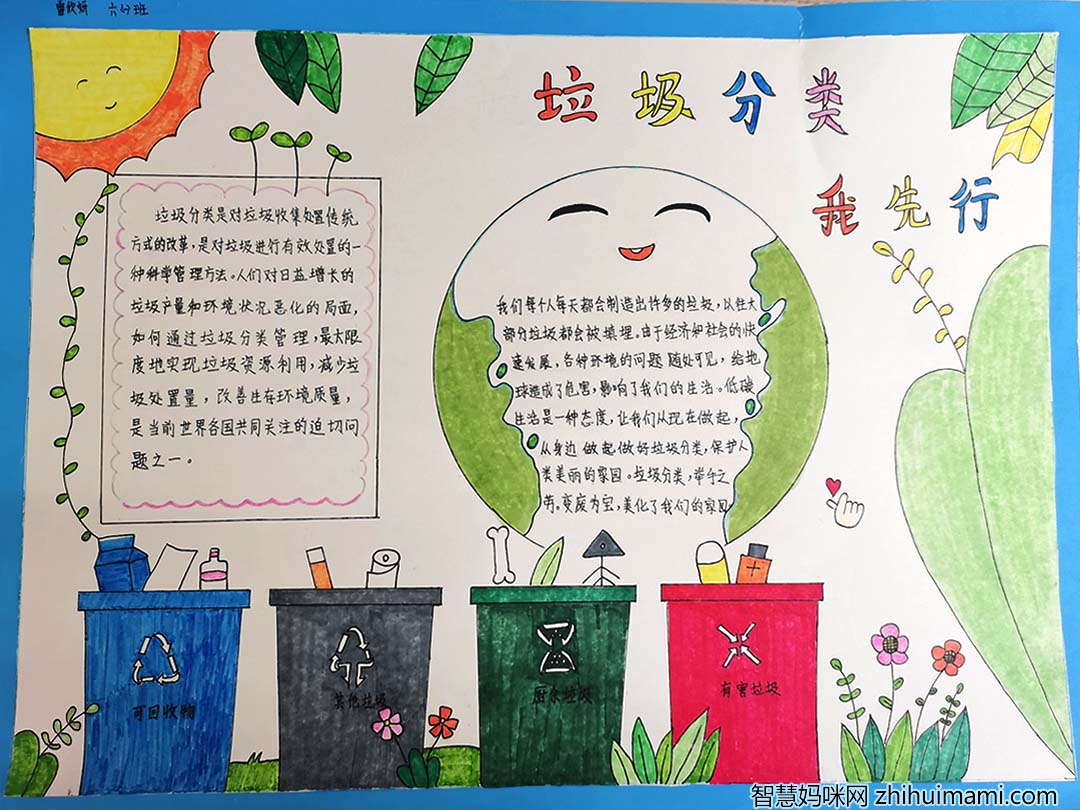 六(2)班
垃圾分类
我先行
垃圾分类是对垃圾收集处置传统
方式的改革,是对垃圾进行有效处置的一
种科学管理方法。人们对日益增长的
垃圾产量和环境状况恶化的局面,
如何通过垃圾分类管理,最大限
度地实现垃圾资源利用,减少垃
圾处置量,改善生存环境质量,
是当前世界各国共同关注的迫切问
题之一。
我们每个人每天都会制造出许多的垃圾,以往大
部分垃圾都会被填埋。由于经济和社会的快
速发展,各种环境的问题随处可见,给地
球造成了危害,影响了我们的生活。低碳
生活是一种态度,让我们从现在做起,
从身边做起做好垃圾分类,保护人
类美丽的家园。垃圾分类,举手之
劳。变废为宝,美化了我们的家园
可回收物
其他垃圾
厨余垃圾
有害垃圾
智慧妈咪网 zhihuimami.com